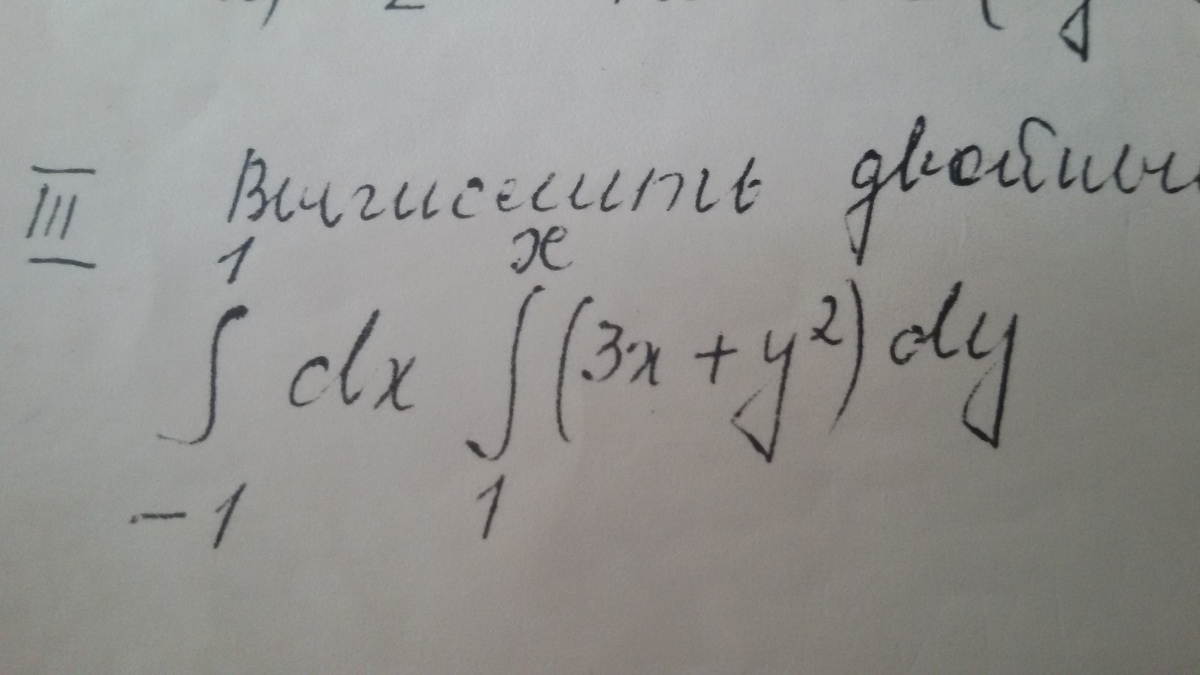 III Вычислить двойн
∫_{-1}^{1} dx ∫_{1}^{x} (3x + y²) dy